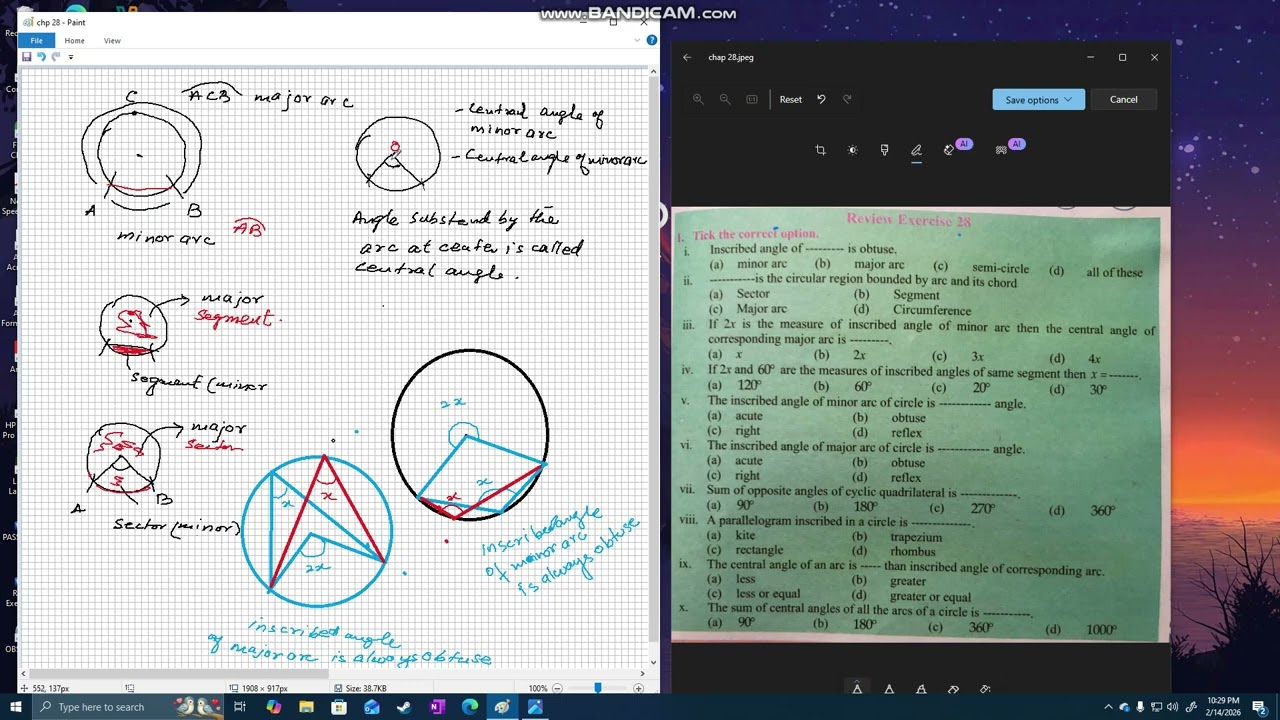 www.BANDICAM.com
chp 28 - Paint
File Home View
C
ACB major arc
A B
minor arc AB
θ
- Central angle of
minor arc
- Central angle of minor arc
Angle substend by the
arc at center is called
central angle.
major
segment.
segment (minor
major
sector
A B
sector (minor)
x
x
2x
inscribed angle
of major arc is always obtuse
2x
x
x
inscribed angle
of minor arc
is always obtuse
552, 137px
1908 × 917px
Size: 38.7KB
100%
chap 28.jpeg
Reset
Save options
Cancel
AI
AI
Review Exercise 28
1. Tick the correct option.
i. Inscribed angle of --------- is obtuse.
(a) minor arc (b) major arc (c) semi-circle (d) all of these
ii. -----------is the circular region bounded by arc and its chord
(a) Sector (b) Segment
(c) Major arc (d) Circumference
iii. If 2x is the measure of inscribed angle of minor arc then the central angle of
corresponding major arc is ---------.
(a) x (b) 2x (c) 3x (d) 4x
iv. If 2x and 60° are the measures of inscribed angles of same segment then x =-------.
(a) 120° (b) 60° (c) 20° (d) 30°
v. The inscribed angle of minor arc of circle is ------------ angle.
(a) acute (b) obtuse
(c) right (d) reflex
vi. The inscribed angle of major arc of circle is ------------ angle.
(a) acute (b) obtuse
(c) right (d) reflex
vii. Sum of opposite angles of cyclic quadrilateral is -------------.
(a) 90° (b) 180° (c) 270° (d) 360°
viii. A parallelogram inscribed in a circle is --------------.
(a) kite (b) trapezium
(c) rectangle (d) rhombus
ix. The central angle of an arc is ----- than inscribed angle of corresponding arc.
(a) less (b) greater
(c) less or equal (d) greater or equal
x. The sum of central angles of all the arcs of a circle is -----------.
(a) 90° (b) 180° (c) 360° (d) 1000°
Type here to search
10:29 PM
2/14/2026